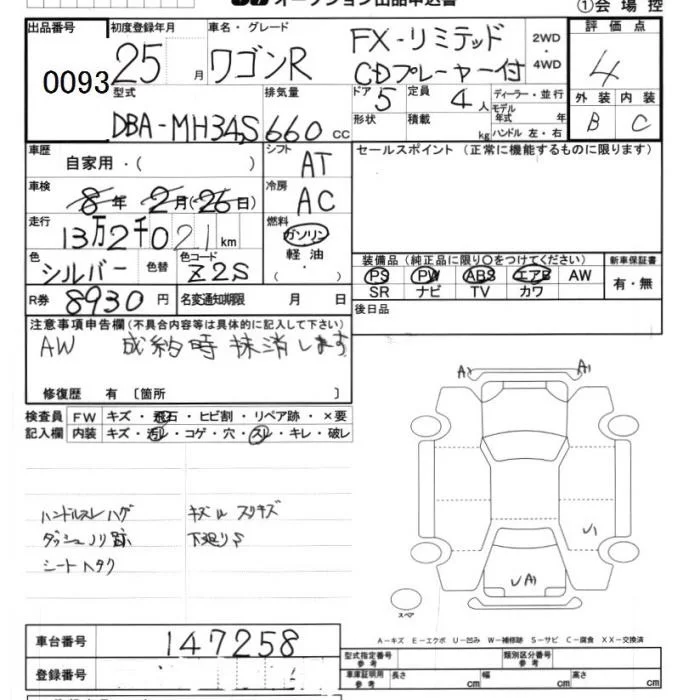 オークション出品申込書
①会場控
出品番号 初度登録年月 車名・グレード 評価点
0093 25 月 ワゴンR FX-リミテッド 2WD・4WD 4
CDプレーヤー付
型式 排気量 ドア 5 定員 4人 ディーラー・並行 外装 内装
DBA-MH34S 660 cc 形状 積載 kg モデル年式 年 B C
ハンドル 左・右
車歴 自家用・( ) シフト AT セールスポイント (正常に機能するものに限ります)
車検 8年 2月(26日) 冷房 AC
走行 13万2千021km 燃料 ガソリン
軽油
( )
色 シルバー 色替 色コード Z2S 装備品 (純正品に限り○をつけてください) 新車保証書
PS PW ABS エアB AW 有・無
SR ナビ TV カワ
R券 8930円 名変通知期限 月 日 後日品
注意事項申告欄(不具合内容等は具体的に記入して下さい)
AW 成約時抹消します
修復歴 有 〔箇所 〕
検査員 FW キズ・飛石・ヒビ割・リペア跡・×要
記入欄 内装 キズ・汚レ・コゲ・穴・スレ・キレ・破レ
A1 A1
ハンドルスレハゲ キズルスリキズ
ダッシュノリ跡 下廻りS
シートヘタク
U1
UA1
スペア
A-キズ E-エクボ U-凹み W-補修跡 S-サビ C-腐食 XX-交換済
車台番号 147258
型式指定番号 参考 類別区分番号 参考
登録番号
車庫証明用 参考 長さ cm 幅 cm 高さ cm